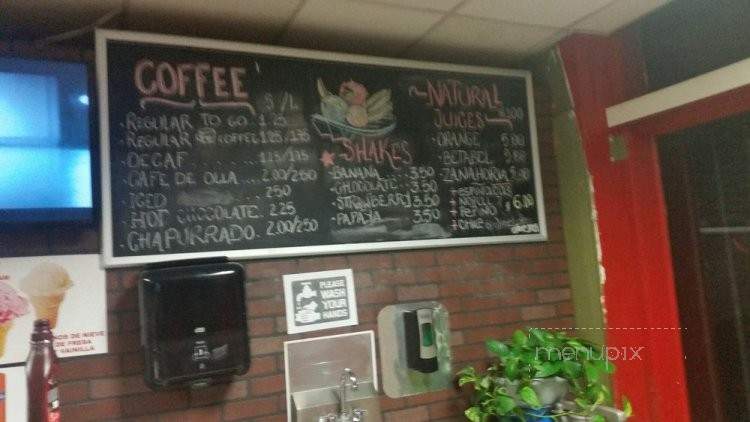 COFFEE
S/L
• REGULAR TO GO 1.25
• REGULAR COFFEE 1.25/1.75
• DECAF ........ 1.25/1.75
• CAFE DE OLLA .... 2.00/2.50
• ICED 2.50
• HOT CHOCOLATE. 2.25
• CHAPURRADO. 2.00/2.50
SHAKES
• BANANA 3.50
• CHOCOLATE 3.50
• STRAWBERRY 3.50
• PAPAJA 3.50
NATURAL
JUICES
• ORANGE 5.00
• BETABEL
• ZANAHORIA 5.00
+ ESPINACAS
+ NOPAL
+ PEPINO $6.00
PLEASE
WASH
YOUR
HANDS
OS DE NIEVE
DE FRESA
Y VAINILLA
menupix